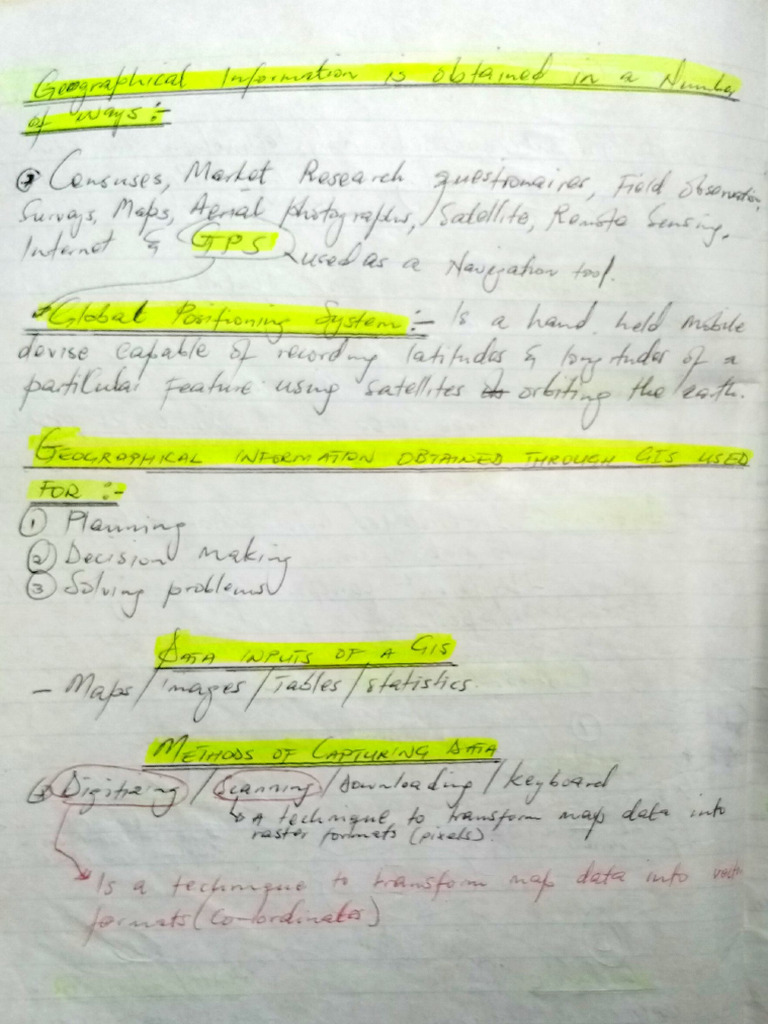 Geographical Information is obtained in a Number
of ways :-
Censuses, Market Research questionaires, Field observation,
Surveys, Maps, Aerial photographs, Satellite, Remote Sensing,
Internet & GPS used as a Navigation tool.
Global Positioning System :- Is a hand held mobile
devise capable of recording latitudes & longitudes of a
particular Feature using satellites orbiting the earth.
GEOGRAPHICAL INFORMATION OBTAINED THROUGH GIS USED
FOR :-
① Planning
② Decision making
③ Solving problems
DATA INPUTS OF A GIS
- Maps / images / Tables / statistics
METHODS OF CAPTURING DATA
Digitizing / Scanning / Downloading / Keyboard
A technique to transform map data into
raster formats (pixels).
Is a technique to transform map data into
formats (co-ordinates)